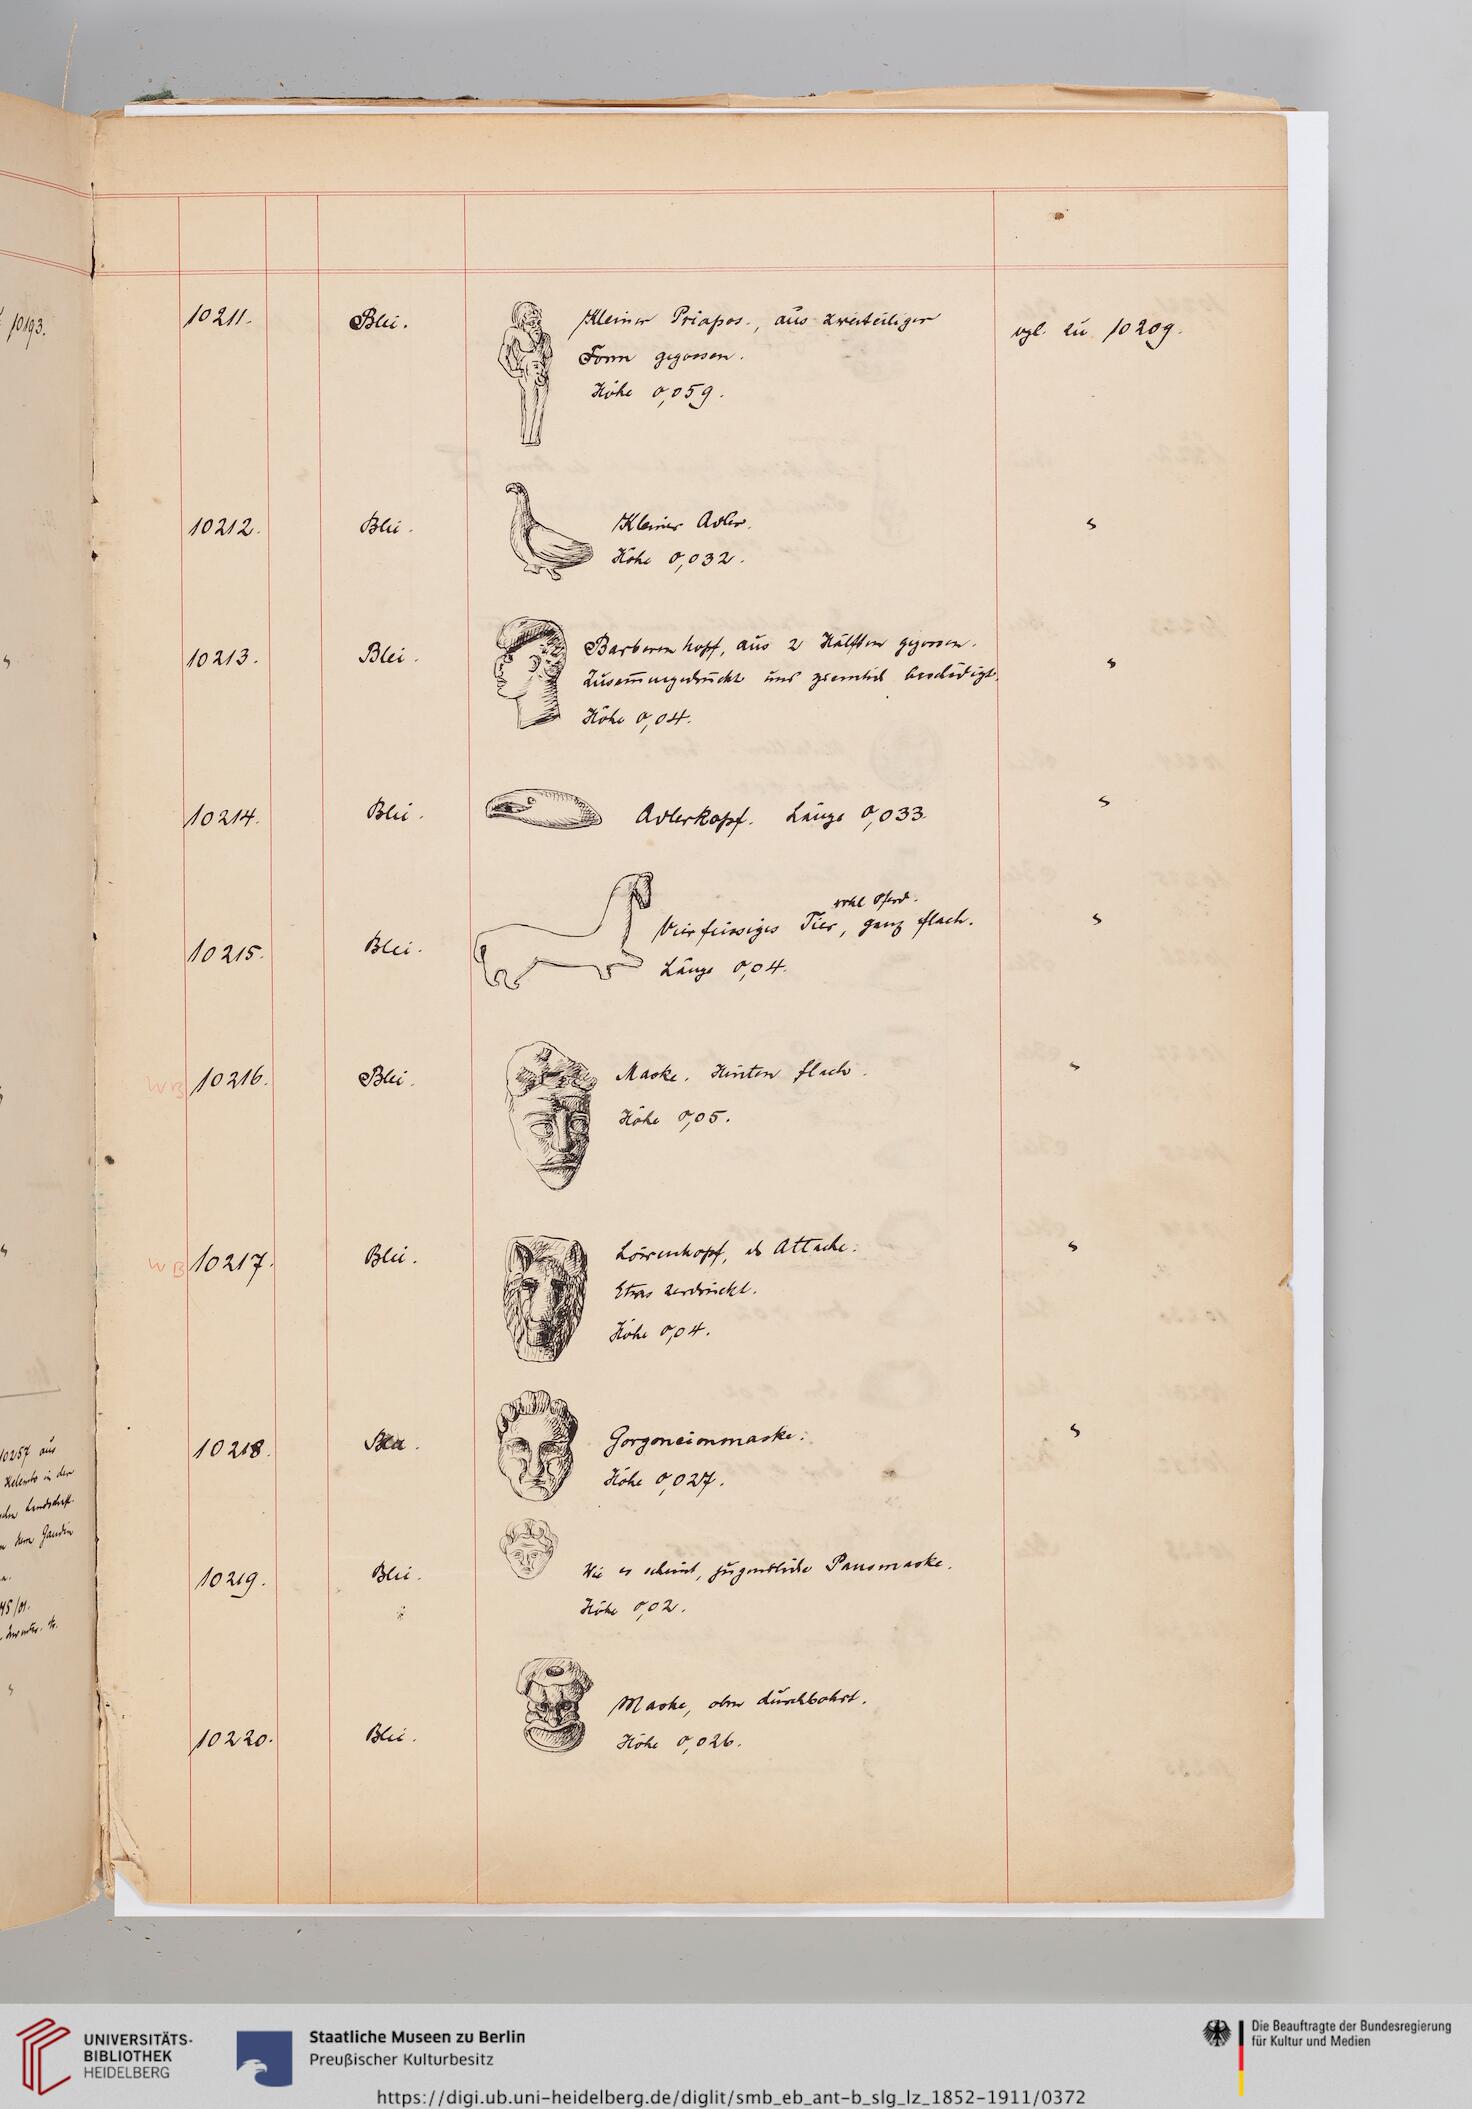 10193.
10211.
Blei.
Kleiner Priapos., aus zweiteiliger
Form gegossen.
Höhe 0,059.
vgl. zu 10209.
10212.
Blei.
Kleiner Adler.
Höhe 0,032.
"
10213.
Blei.
Barbarenkopf, aus 2 Hälften gegossen.
Zusammengedrückt und ziemlich beschädigt.
Höhe 0,04.
"
10214.
Blei.
Adlerkopf. Länge 0,033.
"
10215.
Blei.
wohl Pferd.
Vierfüssiges Tier, ganz flach.
Länge 0,04.
"
WB
10216.
Blei.
Maske. Hinten flach.
Höhe 0,05.
"
WB
10217.
Blei.
Löwenkopf, als Attache.
Etwas zerdrückt.
Höhe 0,04.
"
10218.
Blei.
Gorgoneionmaske.
Höhe 0,027.
"
10219.
Blei.
Wie es scheint, jugendliche Pansmaske.
Höhe 0,02.
10220.
Blei.
Maske, oben durchbohrt.
Höhe 0,026.
10257 aus
in der
Landschaft.
Herrn Gaudin
UNIVERSITÄTS-
BIBLIOTHEK
HEIDELBERG
Staatliche Museen zu Berlin
Preußischer Kulturbesitz
https://digi.ub.uni-heidelberg.de/diglit/smb_eb_ant-b_slg_lz_1852-1911/0372
Die Beauftragte der Bundesregierung
für Kultur und Medien